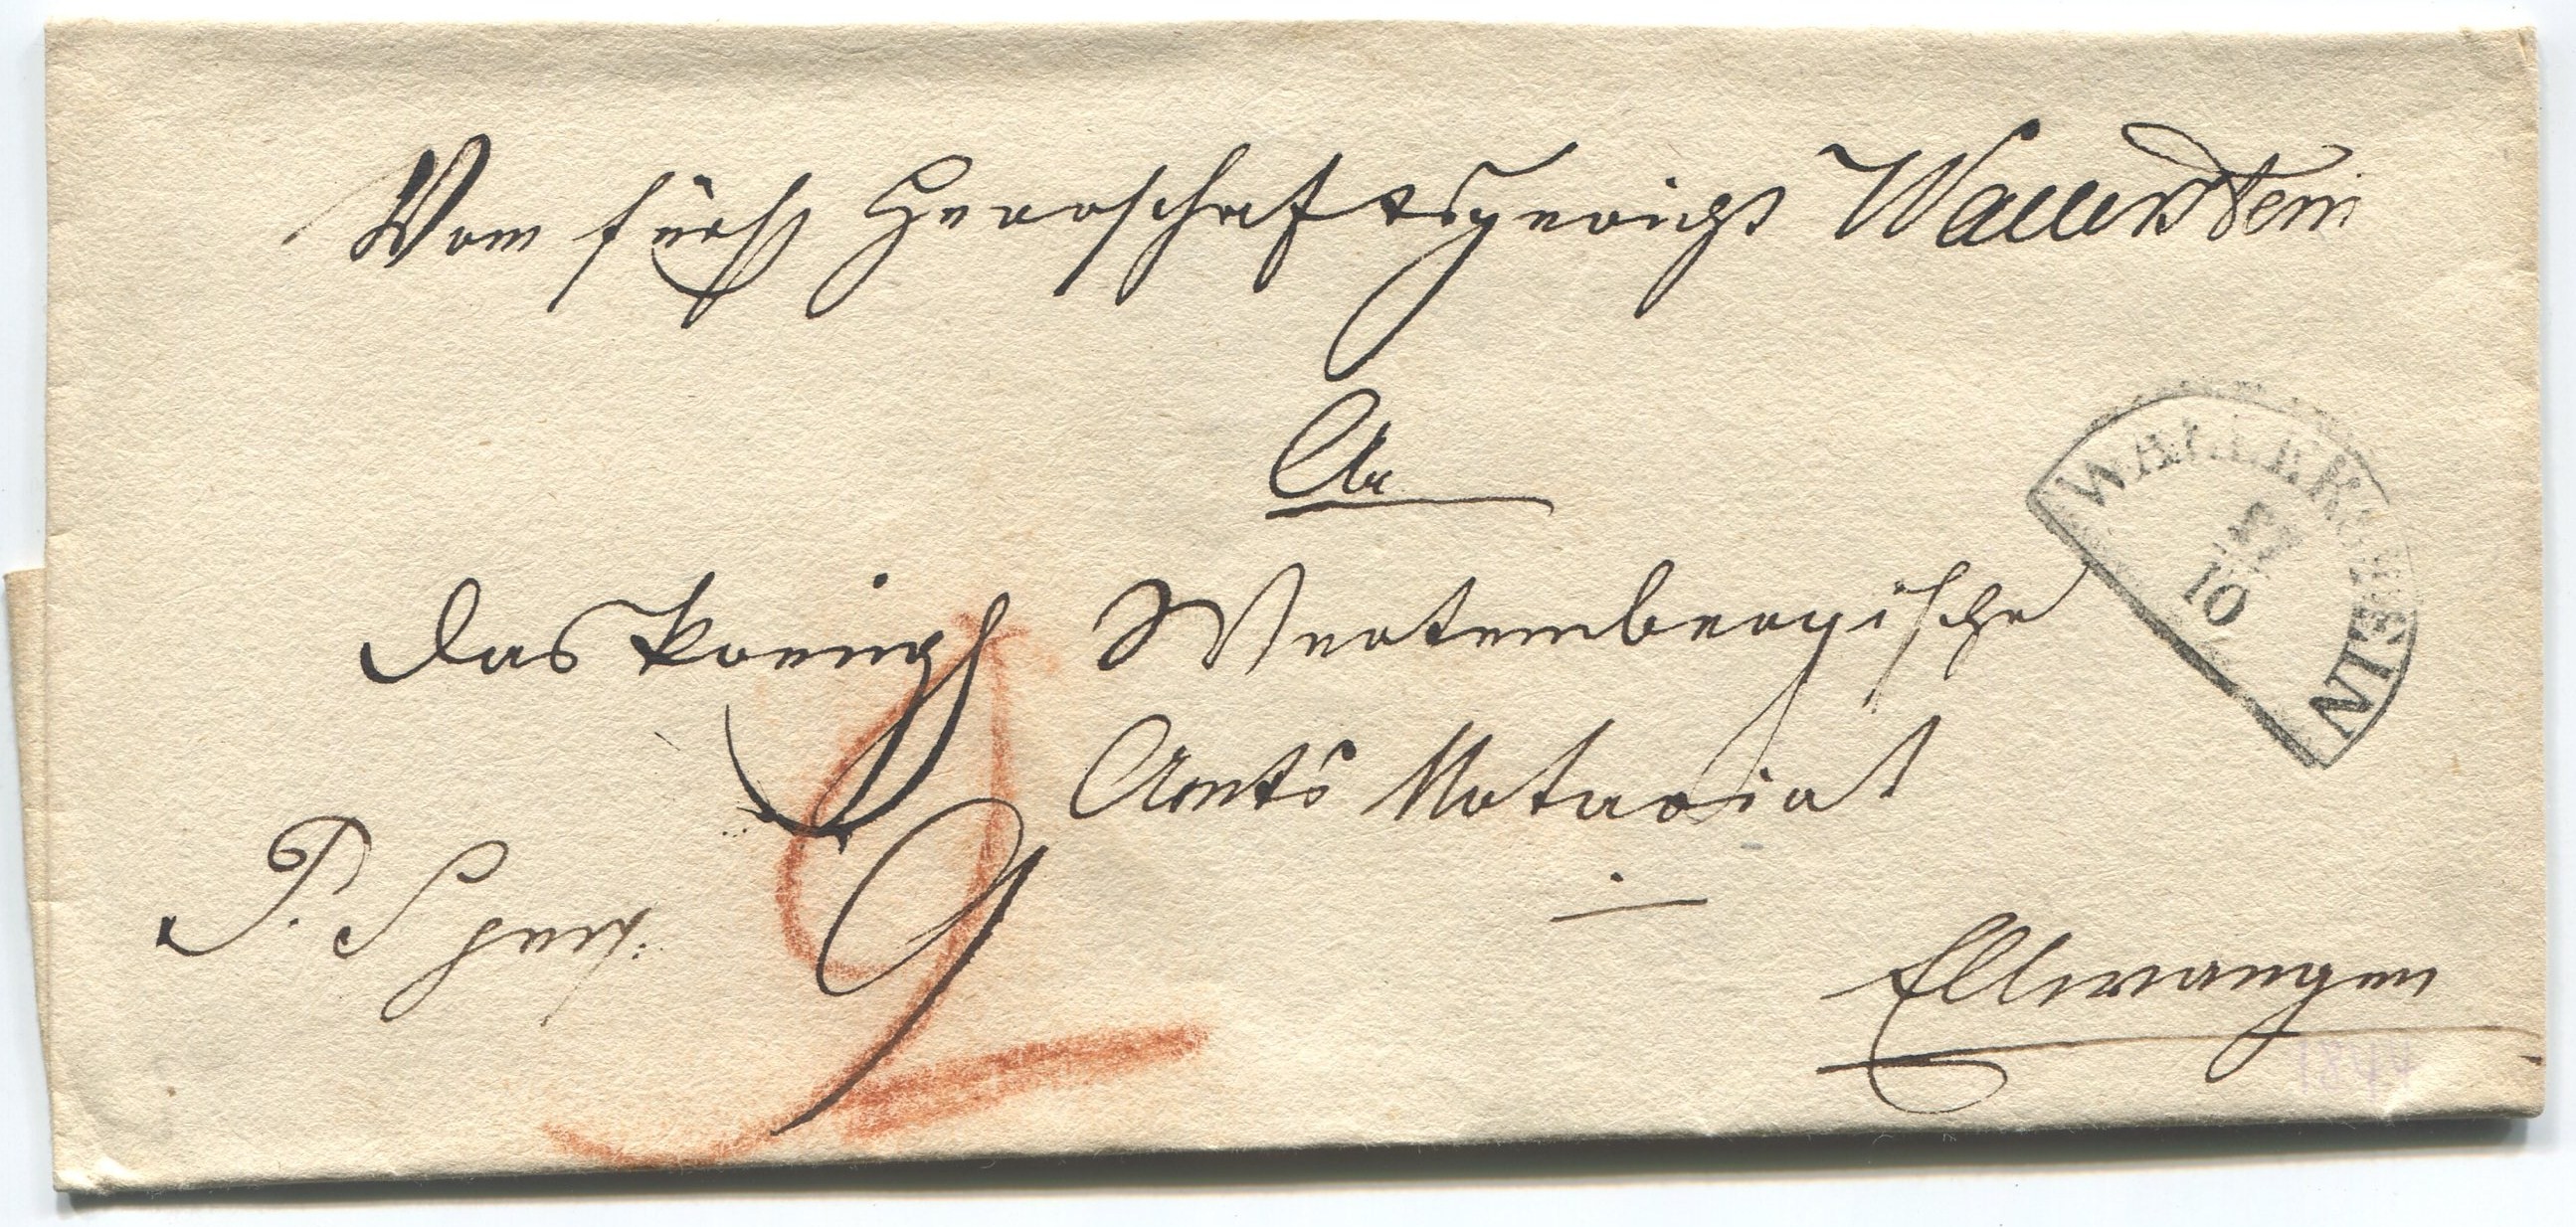 Vom fürstl Herrschaftsgericht Wallerstein
An
das koenigl Wertembergische
Amts Notariat
P. S
9
9
Ellwangen
WALLERSTEIN
10
1844